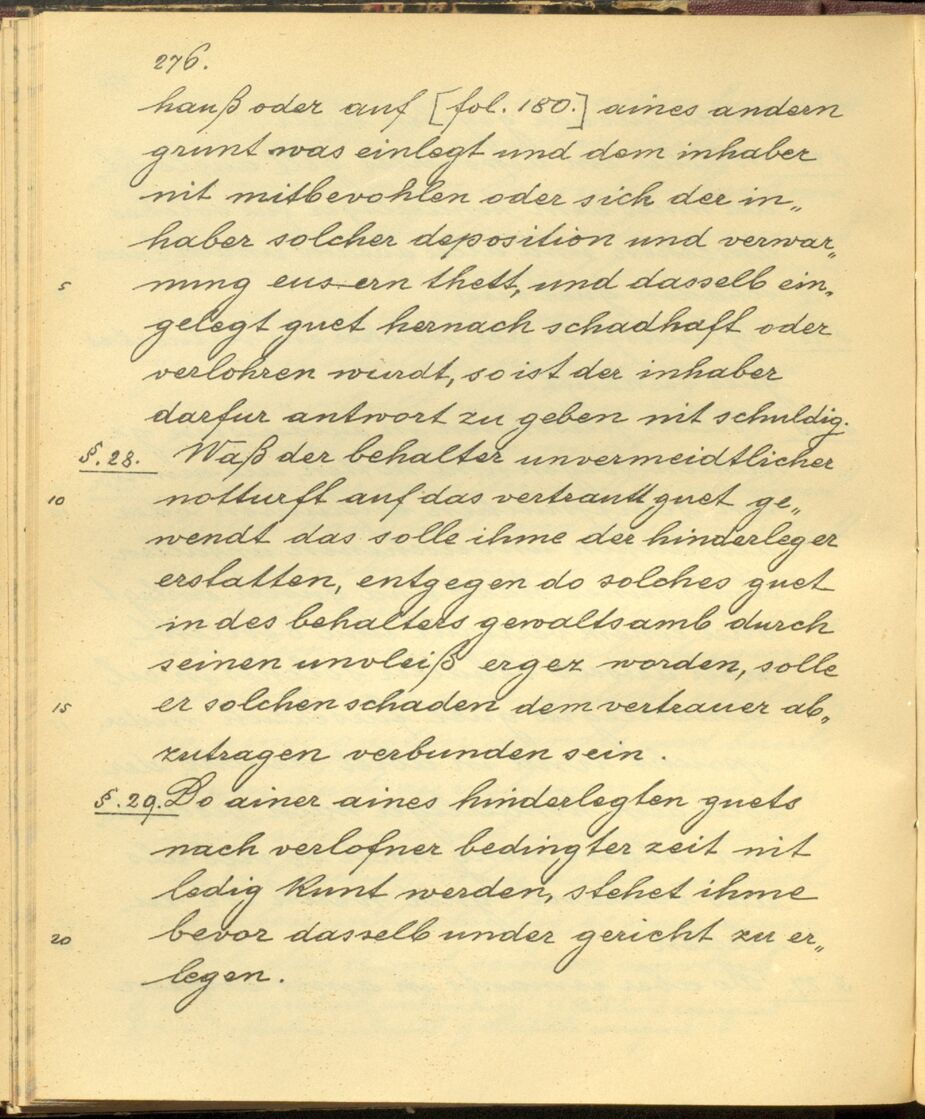 276.
hauß oder auf [fol. 180.] aines andern
grunt was einlegt und dem inhaber
nit mitbevohlen oder sich der in„
haber solcher deposition und verwar„
5 nung eussern thett, und dasselb ein„
gelegt guet hernach schadhaft oder
verlohren wurdt, so ist der inhaber
darfur antwort zu geben nit schuldig.
§. 28. Waß der behalter unvermeidtlicher
10 notturft auf das vertrautt guet ge„
wendt das solle ihme der hinderleger
erstatten, entgegen do solches guet
in des behalters gewaltsamb durch
seinen unvleiß ergez worden, solle
15 er solchen schaden dem vertrauer ab„
zutragen verbunden sein.
§. 29. Do ainer aines hinderlegten guets
nach verlofner bedingter zeit nit
ledig kunt werden, stehet ihme
20 bevor dasselb under gericht zu er„
legen.